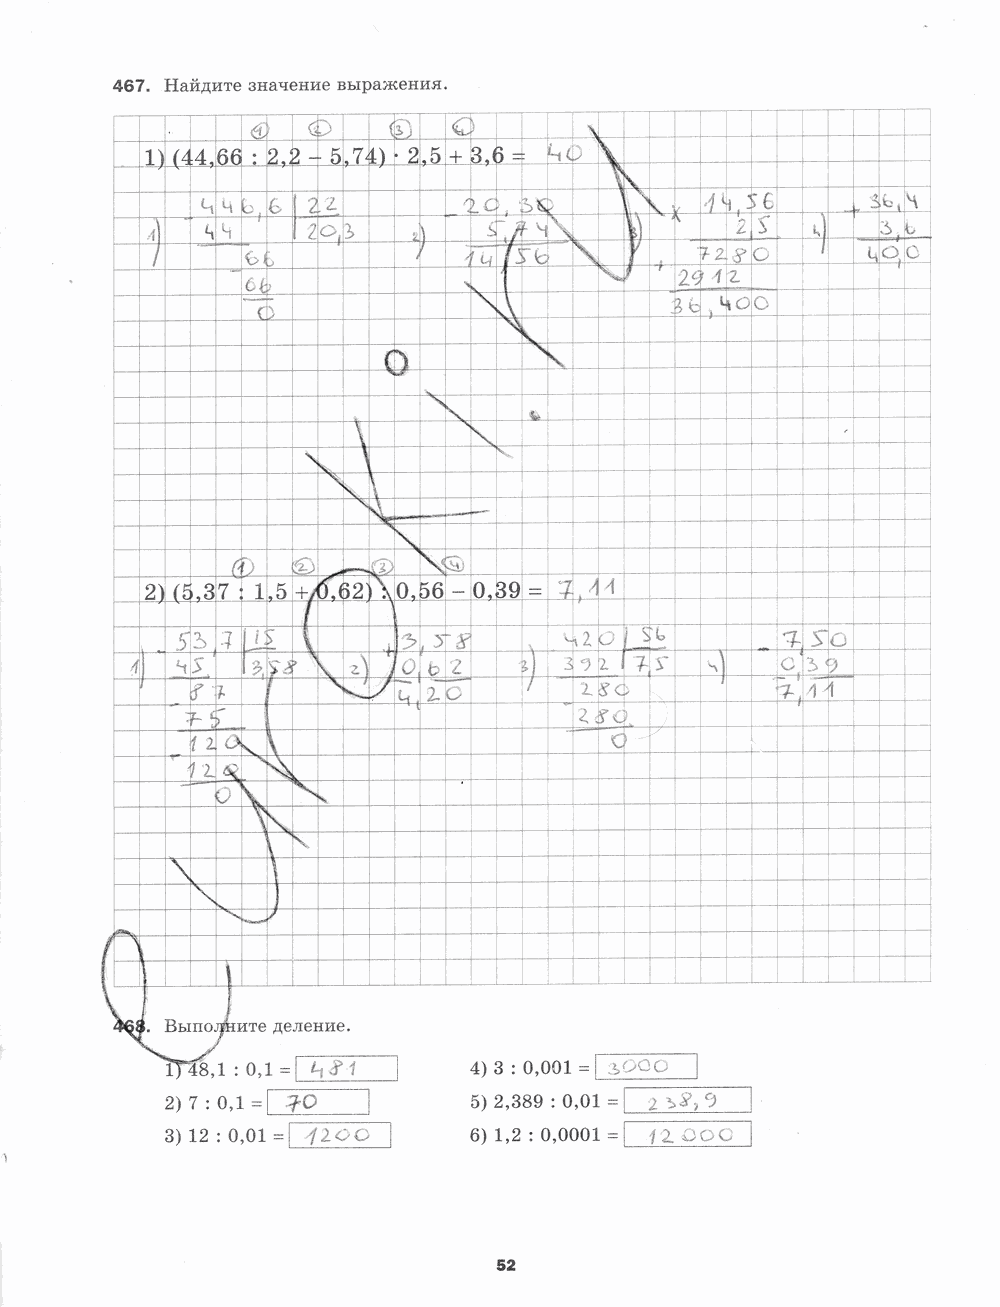 467. Найдите значение выражения.
1 2 3 4
1) (44,66 : 2,2 – 5,74) · 2,5 + 3,6 = 40
1) 446,6 | 22
– 44 | 20,3
66
– 66
0
2) 20,30
– 5,74
14,56
3) 14,56
× 2,5
7280
+ 2912
36,400
4) 36,4
+ 3,6
40,0
1 2 3 4
2) (5,37 : 1,5 + 0,62) : 0,56 – 0,39 = 7,11
1) 53,7 | 15
– 45 | 3,58
87
– 75
120
– 120
0
2) 3,58
+ 0,62
4,20
3) 420 | 56
– 392 | 7,5
280
– 280
0
4) 7,50
– 0,39
7,11
468. Выполните деление.
1) 48,1 : 0,1 = 481
2) 7 : 0,1 = 70
3) 12 : 0,01 = 1200
4) 3 : 0,001 = 3000
5) 2,389 : 0,01 = 238,9
6) 1,2 : 0,0001 = 12000
52